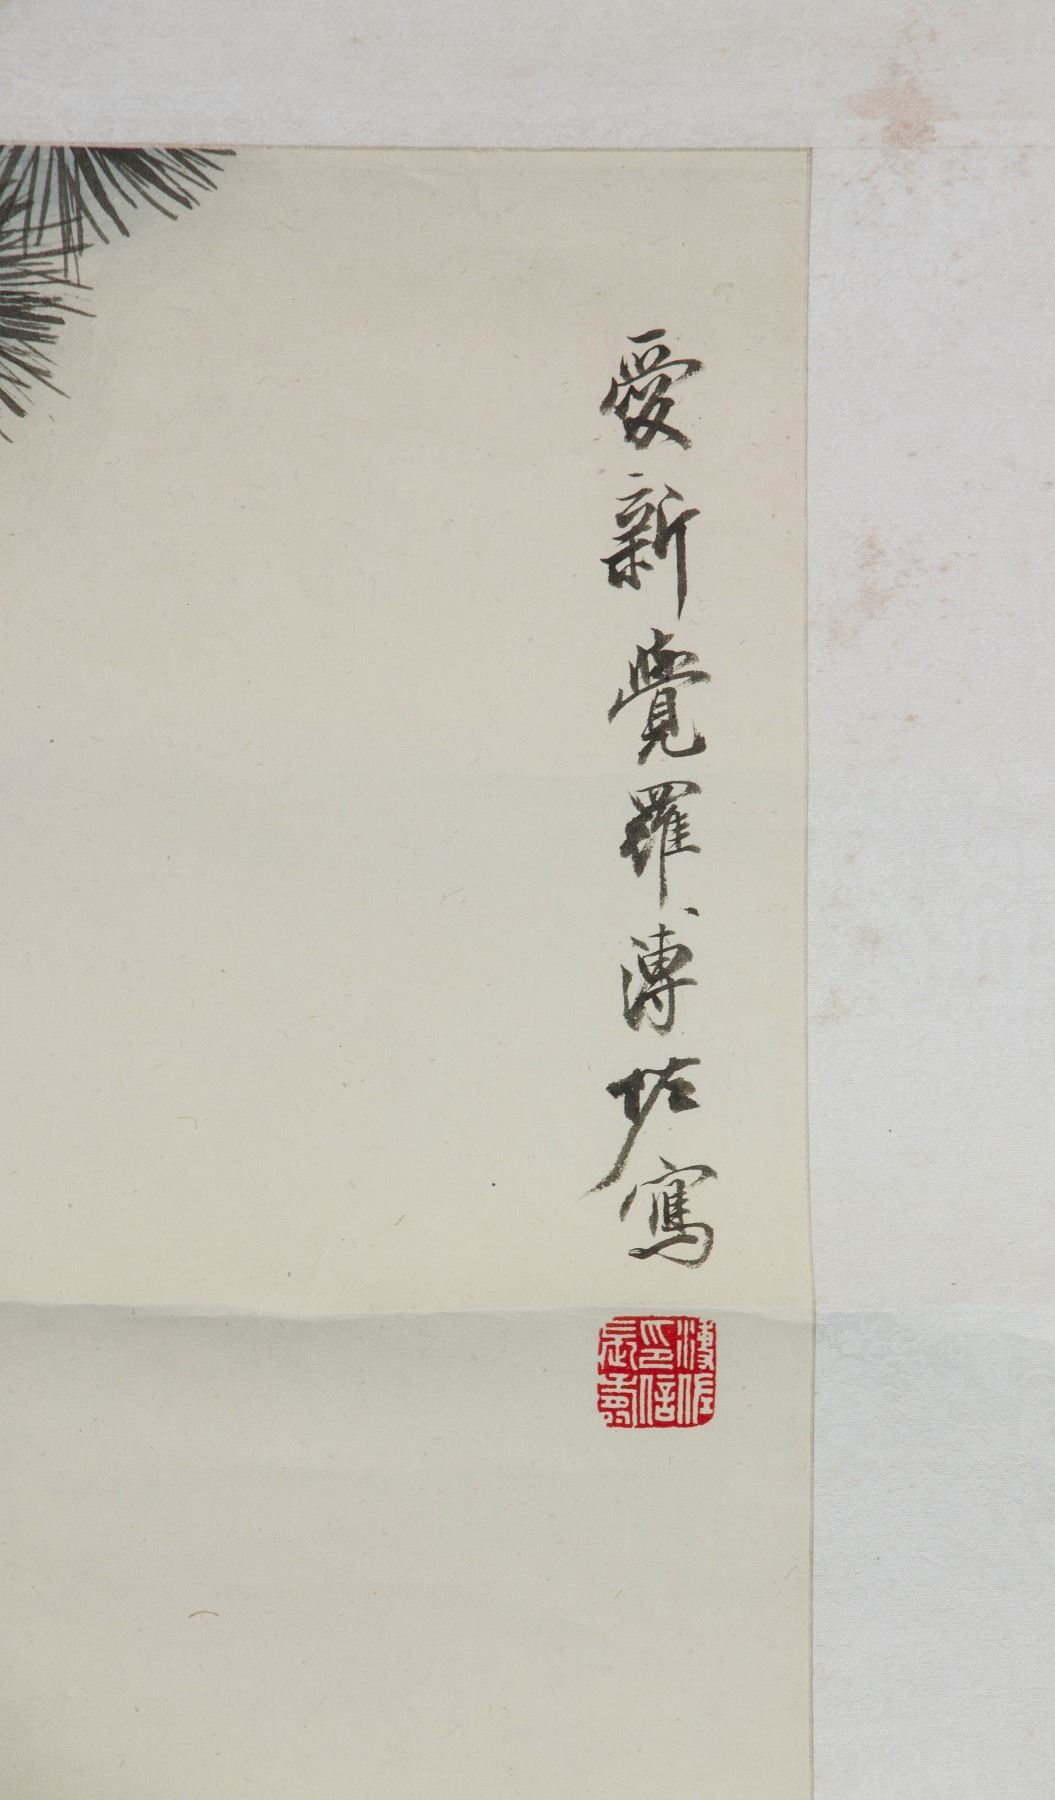 愛新覺羅溥佐寫
溥佐
印信
長壽